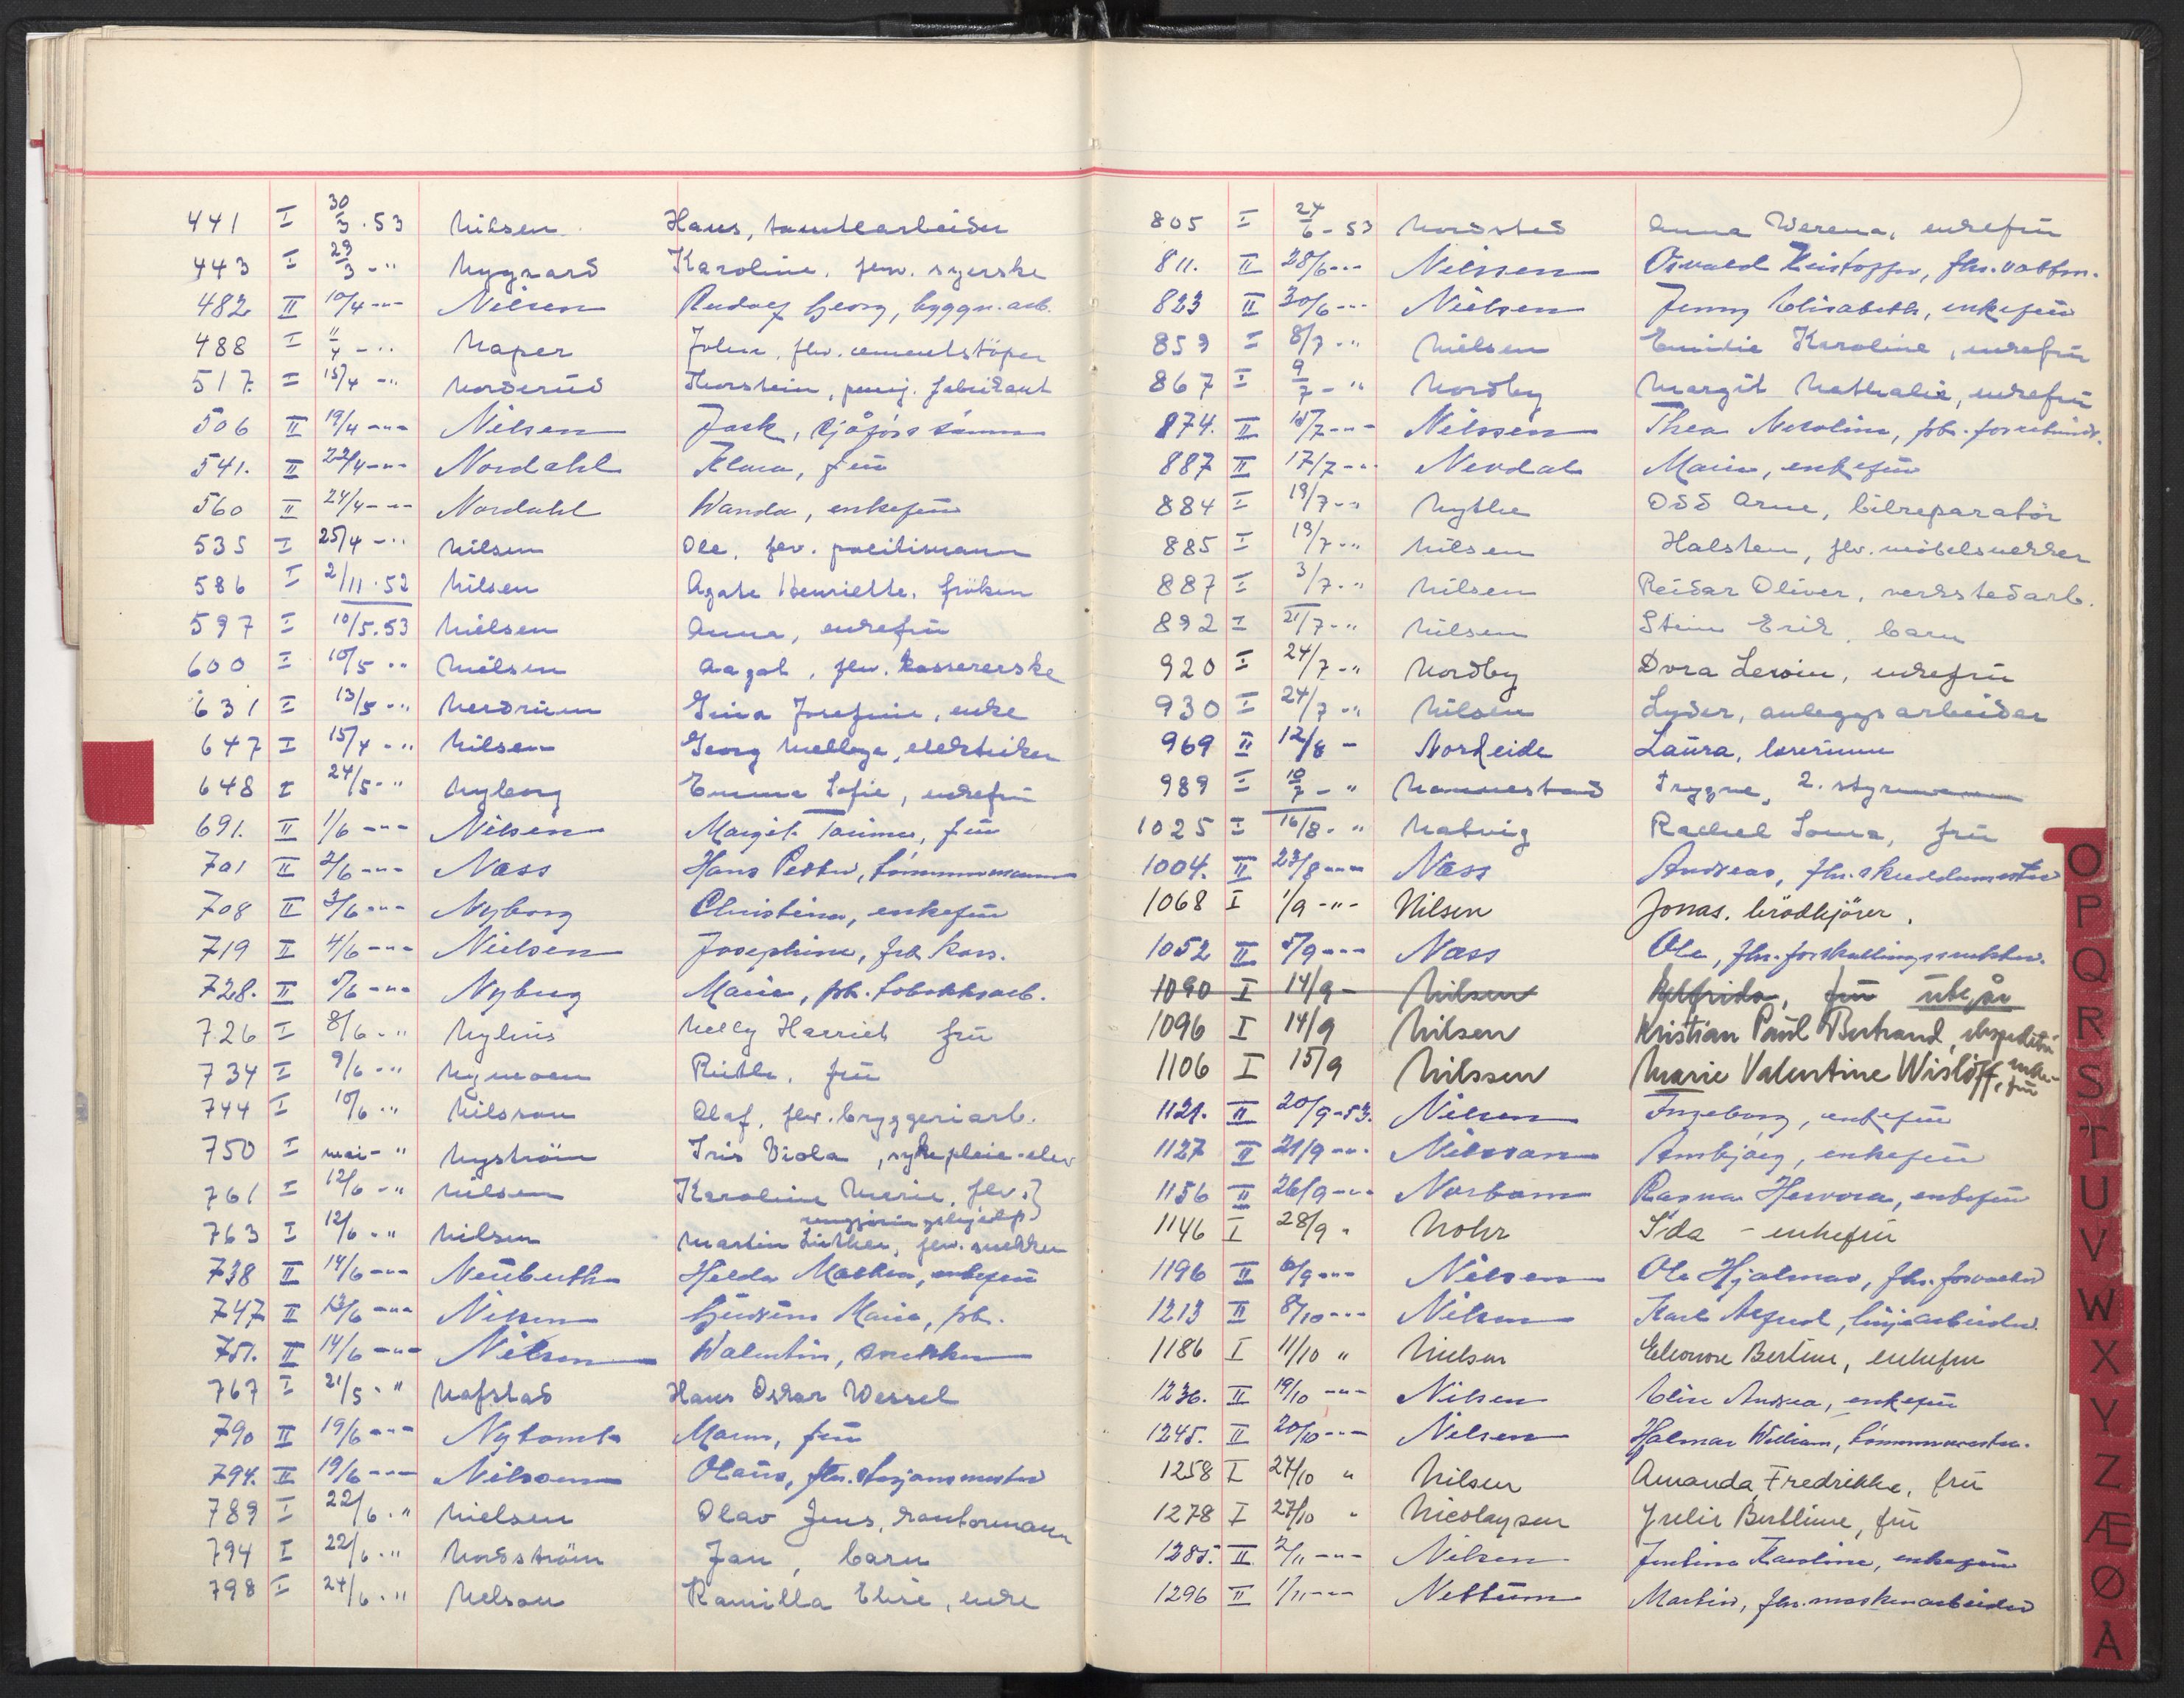 441 I 30/3.53 Nilsen Hans, tomtearbeider
443 I 29/3 -" Nygaard Karoline, fhv. syerske
482 II 10/4 -"- Nilsen Rudolf Georg, byggn.arb.
488 I 11/4 -" Naper Johan, fhv. cementstöper
517 I 15/4 -" Norderud Thorstein, fabrikant
506 II 19/4 -"- Nilsen Jack,
541. II 22/4 -"- Nordahl Klara, frü
560 II 24/4 -"- Nordahl Wanda, enkefrü
535 I 25/4 -" Nilsen Ole, fhv. politimann
586 I 2/11.52 Nilsen Agate Henriette, fröken
597 I 10/5.53 Nielsen Anna, enkefrü
600 I 10/5 " Nielsen Aagot, fhv. kassererske
631 I 13/5 -" Nerdrum Gina Josefine, enke
647 I 15/4 -" Nilsen Georg elektriker
648 I 24/5 -" Nyborg Emma Sofie, enkefrü
691. II 1/6 -"- Nilsen Margit frü
701 II 2/6 -"- Næss Hans Petter, tömmermann
708 II 3/6 -"- Nyborg Christine, enkefrü
719 II 4/6 -"- Nielsen Josephine, kass.
728. II 5/6 -"- Nyberg Marie, tobakksarb.
726 I 8/6 -" Nylius Nelly Harriet frü
734 I 9/6 -" Nymoen Ruth, frü
744 I 10/6 -" Nilsson Olaf, fhv. bryggeriarb.
750 I mai -" Nyström Iris Viola, sykepleie-elev
761 I 12/6 -" Nilsen Karoline Marie, fhv.
rengjöringshjelp
763 I 12/6 -" Nilsen Martin Luther, fhv. snekker
738 II 14/6 -"- Neuberth Helda enkefrü
747 II 13/6 -"- Nilsen Marie,
751. II 14/6 -"- Nilsen Valentin, snekker
767 I 21/5 -" Nafstad Hans Oskar Wessel
790 II 19/6 -"- Nyland frü
794. II 19/6 -"- Nilsen Olaus,
789 I 22/6 -" Nielsen Olav Jens, kontormann
794 I 22/6 -" Nordström Jan, barn
798 I 24/6 -" Nelson Kamilla Elise, enke
805 I 24/6 - 53 Nordsted Anna Werena, enkefrü
811. II 28/6 -"- Nilssen Osvald Kristoffer, fhv. vaktm.
823 II 30/6 -"- Nielsen Jenny Elisabeth, enkefrü
859 I 8/7 -" Nielsen Emilie Karoline, enkefrü
867 I 9/7 -" Nordby Margit Nathalie, enkefrü
874. II -"- Nilssen Thea Nicoline,
887 II 17/7 -"- Nerdal Marie, enkefrü
884 I 19/7 -" Nythe Odd Arne, bilreparatör
885 I 19/7 -" Nilsen Halsten, fhv. möbelsnekker
887 I 3/7 -" Nilsen Reidar Oliver, verkstedarb.
892 I 21/7 -" Nilsen Stein Erik, barn
920 I 24/7 -" Nordby Dora Lewine, enkefrü
930 I 24/7 -" Nilsen Lyder, anleggsarbeider
969 II 12/8 - Nordeide Laura, lærerinne
989 I 10/7 -" Nannestad Trygve, 2. styrmann
1025 I 16/8 -" Natvig Rachel Lovise, frü
1004. II 23/8 -"- Næss Andreas,
1068 I 1/9 -"- Nilsen Jonas. brödkjörer.
1052 II 5/9 -"- Næss Ole, fhv. forskallingssnekker.
1090 I 14/9 - Nilsen Alfrida, frü utgår
1096 I 14/9 Nilsen Kristian Paul Bertrand, ekspeditör
1106 I 15/9 Nilssen Marie Valentine Wislöff, enke-
frü
1121. II 20/9-53. Nilsen Ingeborg, enkefrü
1127 II 21/9 -"- Nilssen Annbjørg, enkefrü
1156 II 26/9 -"- Norbom Ragna enkefrü
1146 I 28/9 " Nohr Ida - enkefrü
1196 II 6/9 -"- Nilsen Ole Hjalmar,
1213 II 8/10 -"- Nilsen Karl Alfred, linjearbeider.
1186 I 11/10 " Nielsen Eleonore Bertine, enkefrü
1236. II 19/10 -"- Nilsen Elise Andrea, enkefrü
1245. II 20/10 -"- Nilsen Hjalmar William, tömmermester.
1258 I 27/10 " Nilsen Amanda Fredrikke, frü
1278 I 27/10 " Nicolaysen Julie Berthine, frü
1285. II 2/11 -"- Nilsen Karoline, enkefrü
1296 II 1/11 -"- Nettum Martin, fhv. maskinarbeider
O
P
Q
R
S
T
U
V
W
X
Y
Z
Æ
Ø
A